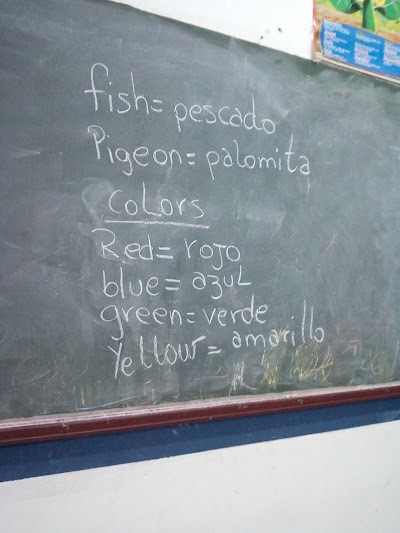 fish= pescado
Pigeon= palomita
coLors
Red= rojo
blue= azuL
green= verde
Yellow= amarillo